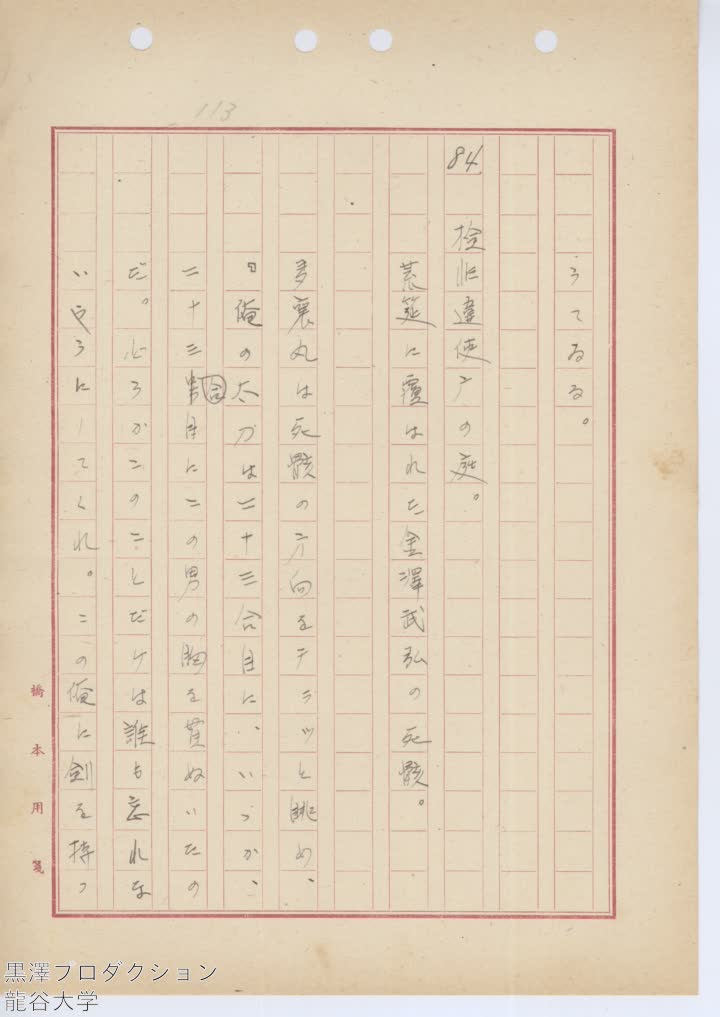 113
うてゐる。
84 検非違使庁の庭。
荒筵に覆はれた金澤武弘の死骸。
多襄丸は死骸の方向をチラッと眺め、
『俺の太刀は二十三合目に、いゝか、
二十三合目にこの男の胸を貫ぬいたの
だ。心ろがこのことだけは誰も忘れな
いやうにしてくれ。この俺に剣を持つ
橋本用箋
黒澤プロダクション
龍谷大学